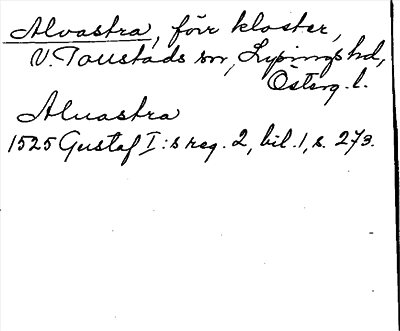 Alvastra, förr kloster,
V. Toustads sn, Lysings hd,
Östерg. l.
Alvastra
1525 Gustaf I:s reg. 2, bil. 1, s. 273.